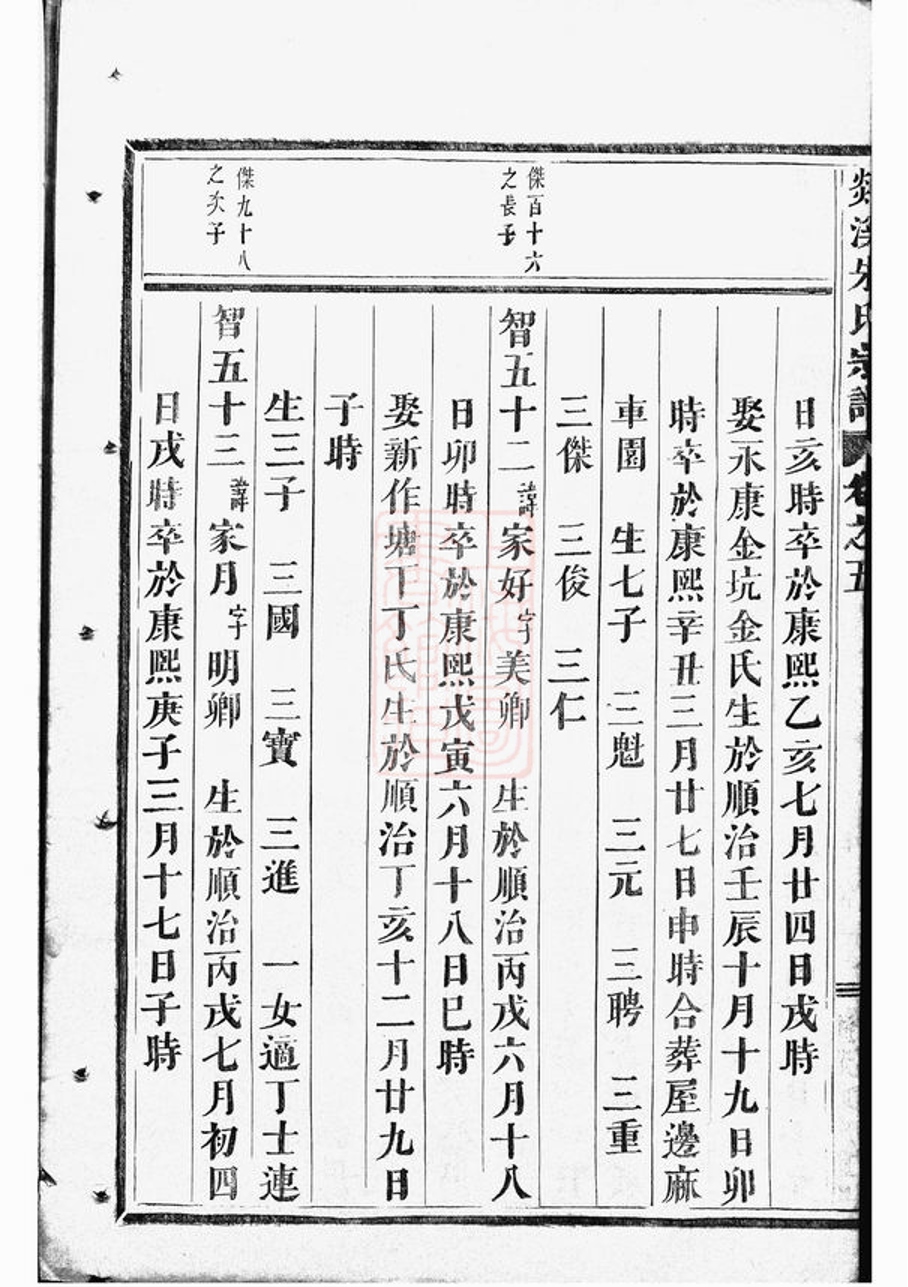 日亥時卒於康熙乙亥七月廿四日戌時
娶永康金坑金氏生於順治壬辰十月十九日卯
時卒於康熙辛丑三月廿七日申時合葬屋邊麻
車園 生七子 三魁 三元 三聘 三重
三傑 三俊 三仁
傑百十六
之長子
智五十二諱家好字美卿 生於順治丙戌六月十八
日卯時卒於康熙戊寅六月十八日巳時
娶新作塘下丁氏生於順治丁亥十二月廿九日
子時
生三子 三國 三寶 三進 一女適丁士連
傑九十八
之次子
智五十三諱家月字明卿 生於順治丙戌七月初四
日戌時卒於康熙庚子三月十七日子時
溪 氏宗譜 卷之五